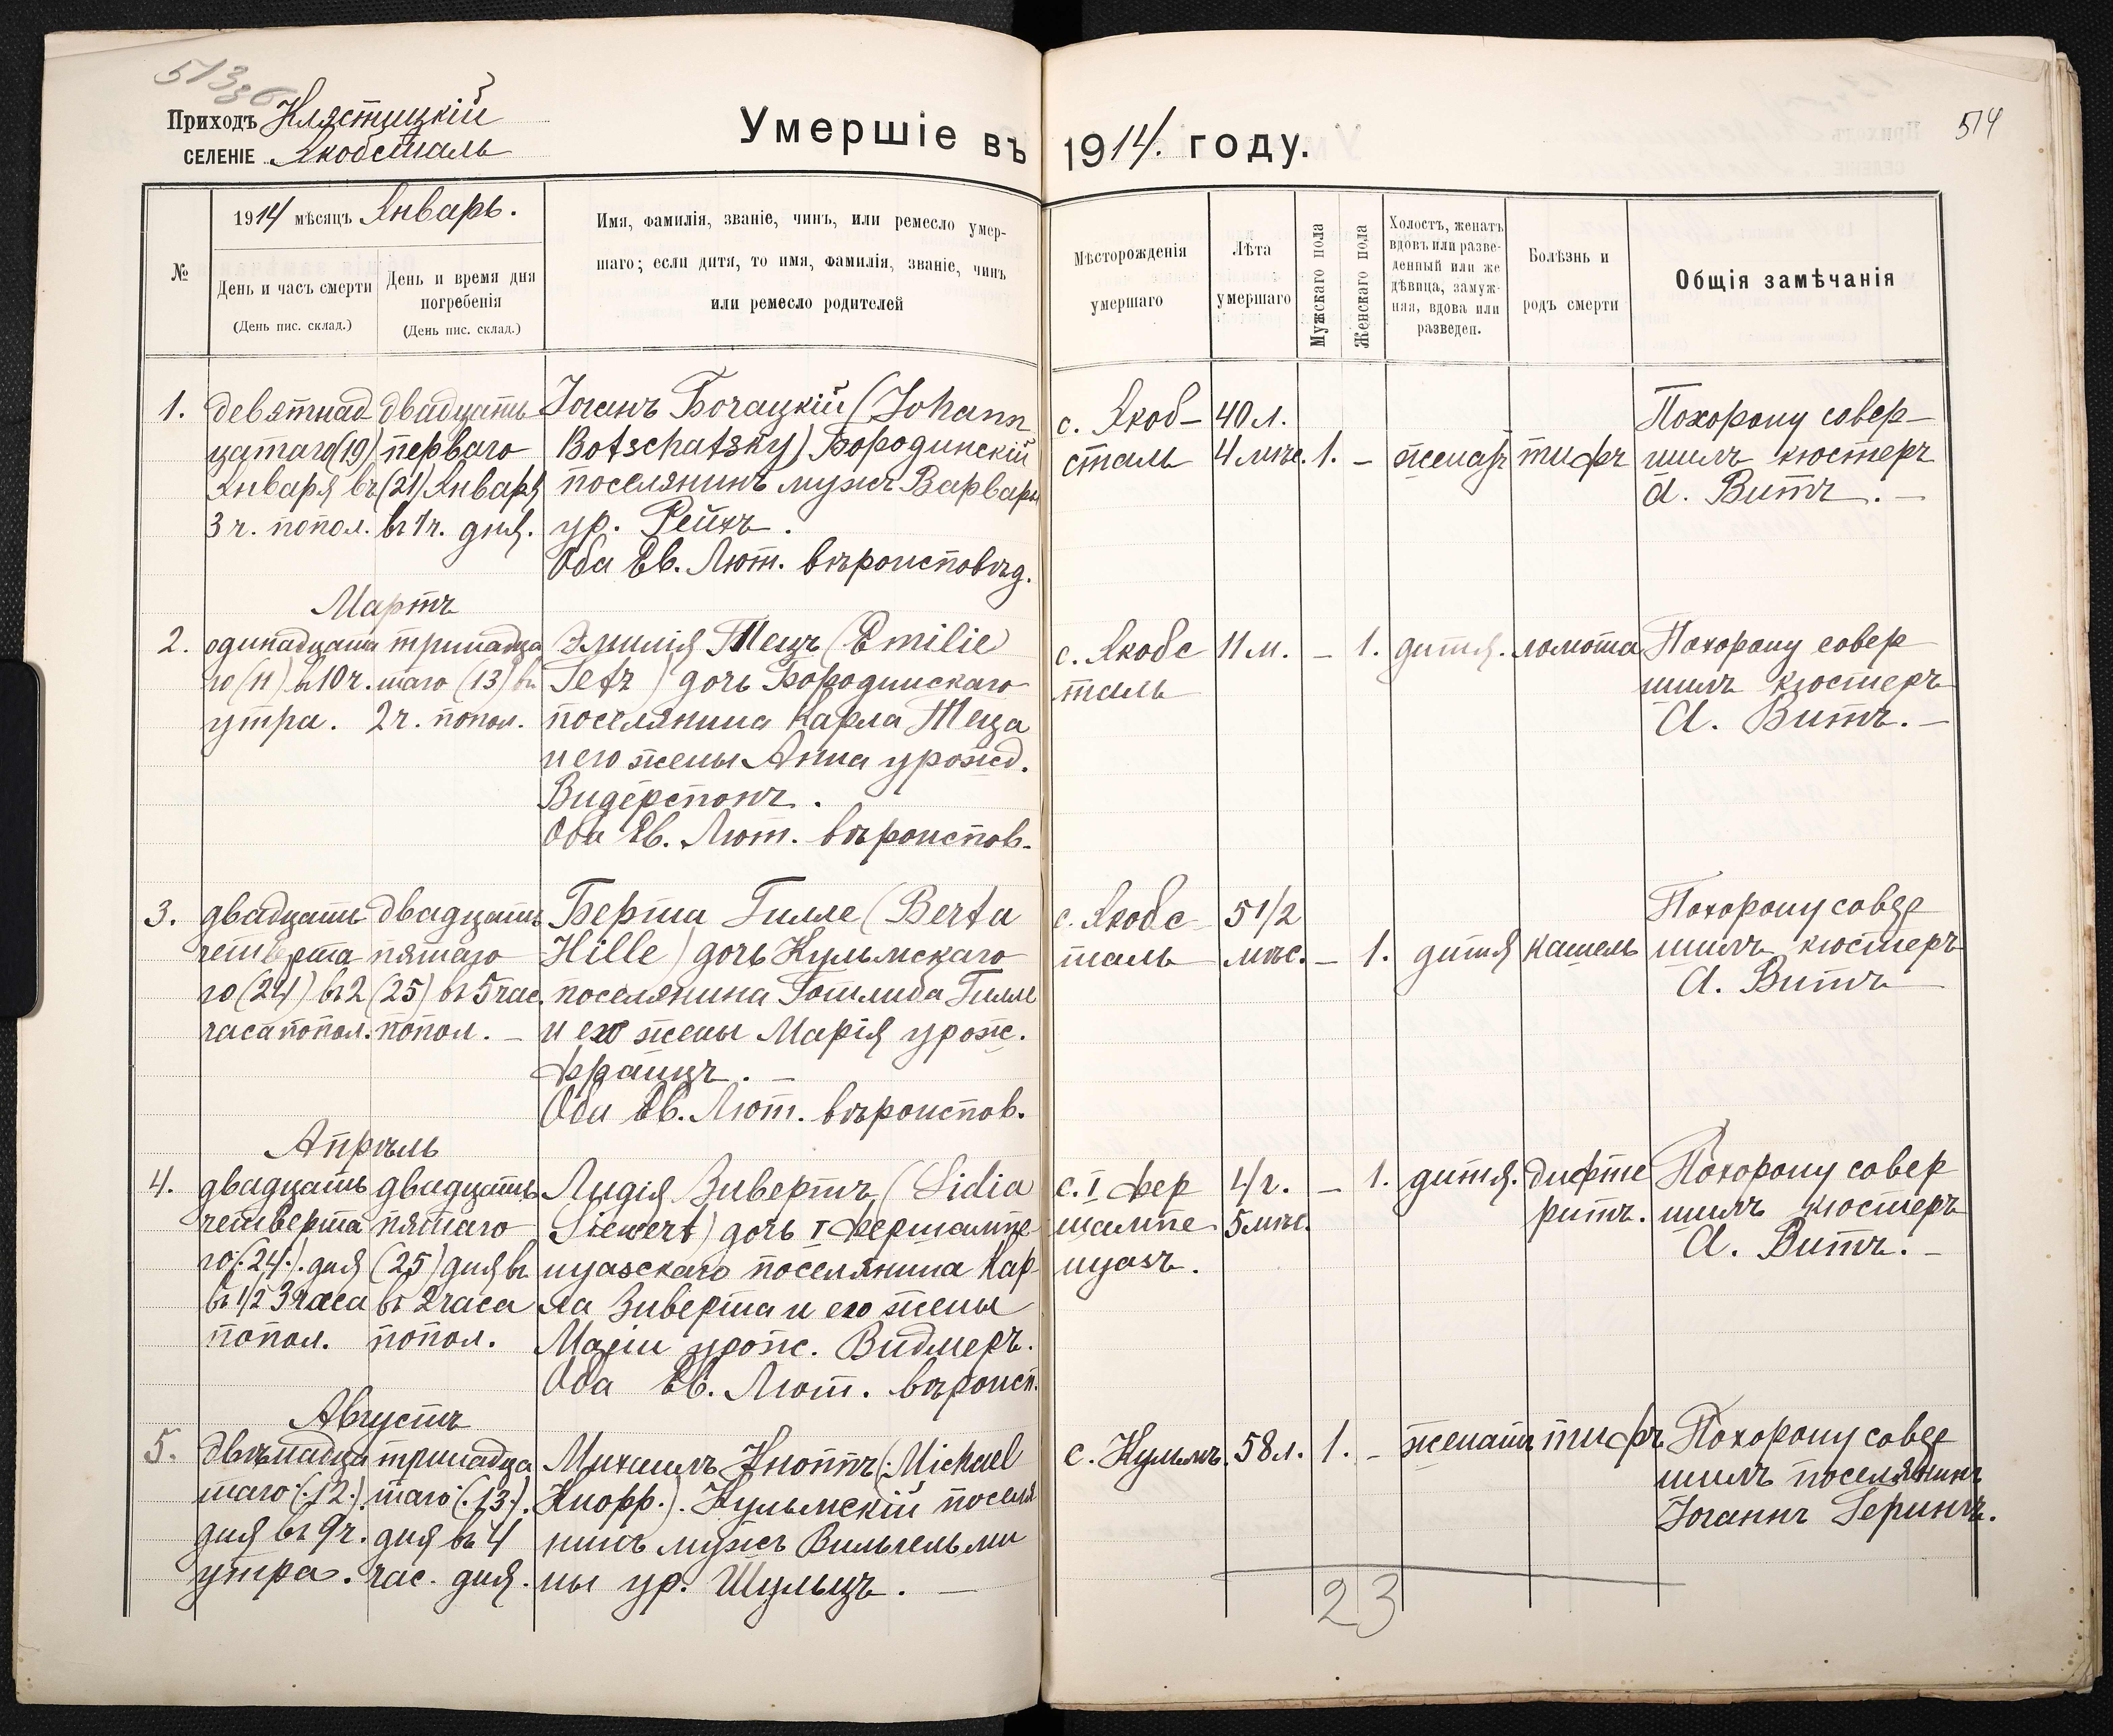 513 об
514
Приходъ Клястицкій
СЕЛЕНІЕ Якобсталь
Умершіе въ 1914. году.
№
1914 мѣсяцъ Январь.
День и часъ смерти
(День пис. склад.)
День и время дня
погребенія
(День пис. склад.)
Имя, фамилія, званіе, чинъ, или ремесло умер-
шаго; если дитя, то имя, фамилія, званіе, чинъ
или ремесло родителей
Мѣсторожденія
умершаго
Лѣта
умершаго
Мужскаго пола
Женскаго пола
Холостъ, женатъ
вдовъ или разве-
денный или же
дѣвица, замуж-
няя, вдова или
разведен.
Болѣзнь и
родъ смерти
Общія замѣчанія
1.
девятнад
цатаго (19)
Января въ
3 ч. попол.
двадцать
перваго
(21) Января
въ 1 ч. дня.
Іоганъ Бочацкій (Johann
Botschatsky) Бородинскій
поселянинъ мужъ Варвары
ур. Рейхъ.
Оба Ев. Лют. вѣроисповѣд.
с. Якоб-
сталь
40 л.
4 мѣс.
1.
-
женатъ
тифъ
Похорону совер-
шилъ кюстеръ
А. Витъ. -
Мартъ
2.
одинадцата
го (11) в 10 ч.
утра.
тринадца
таго (13) въ
2 ч. попол.
Эмилія Тецъ (Emilie
Tetz) дочь Бородинскаго
поселянина Карла Теца
и его жены Анна урожд.
Видерспонъ.
Оба Ев. Лют. вѣроиспов.
с. Якобс
таль
11 м.
-
1.
дитя.
ломота
Похорону совер
шилъ кюстеръ
А. Витъ. -
3.
двадцать
четверта
го (24) въ 2
часа попол.
двадцать
пятаго
(25) въ 5 час.
попол. -
Берта Гилле (Berta
Hille) дочь Кульмскаго
поселянина Готлиба Гилле
и его жены Марія урож.
Францъ. -
Оба Ев. Лют. вѣроиспов.
с. Якобс
таль
5 1/2
мѣс.
-
1.
дитя
кашель
Похорону совер
шилъ кюстеръ
А. Витъ
Апрѣль
4.
двадцать
четверта
го (:24:). дня
въ 1/2 3 часа
попол.
двадцать
пятаго
(25) дня въ
въ 2 часа
попол.
Лидія Зивертъ (Lidia
Siewert) дочь I Фершампе
нуазскаго поселянина Кар
ла Зиверта и его жены
Маріи урож. Видмеръ.
Оба Ев. Лют. вѣроисп.
с. I Фер
шампе
нуазъ.
4 г.
5 мѣс.
-
1.
дитя.
дифте
ритъ.
Похорону совер
шилъ кюстеръ
А. Витъ. -
Августъ
5.
двѣнадца
таго (:12:).
дня въ 9 ч.
утра.
тринадца
таго (:13:).
дня въ 4
час. дня.
Михаилъ Кноппъ (:Michael
Knopp:). Кульмскій поселя
нинъ мужъ Вильгельми
ны ур. Шульцъ. -
с. Кульмъ.
58 л.
1.
-
женатъ
тифъ
Похорону совер
шилъ поселянинъ
Іоганнъ Герингъ.
2 3